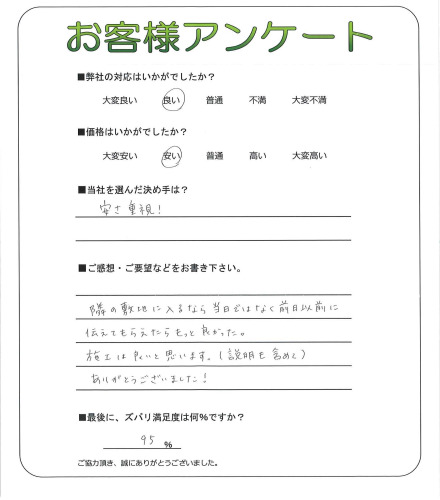 お客様アンケート
■弊社の対応はいかがでしたか？
大変良い 良い 普通 不満 大変不満
■価格はいかがでしたか？
大変安い 安い 普通 高い 大変高い
■当社を選んだ決め手は？
安さ重視！
■ご感想・ご要望などをお書き下さい。
隣の敷地に入るなら当日ではなく前日以前に
伝えてもらえたらもっと良かった。
施工は良いと思います。(説明も含めて)
ありがとうございました！
■最後に、ズバリ満足度は何%ですか？
95 %
ご協力頂き、誠にありがとうございました。